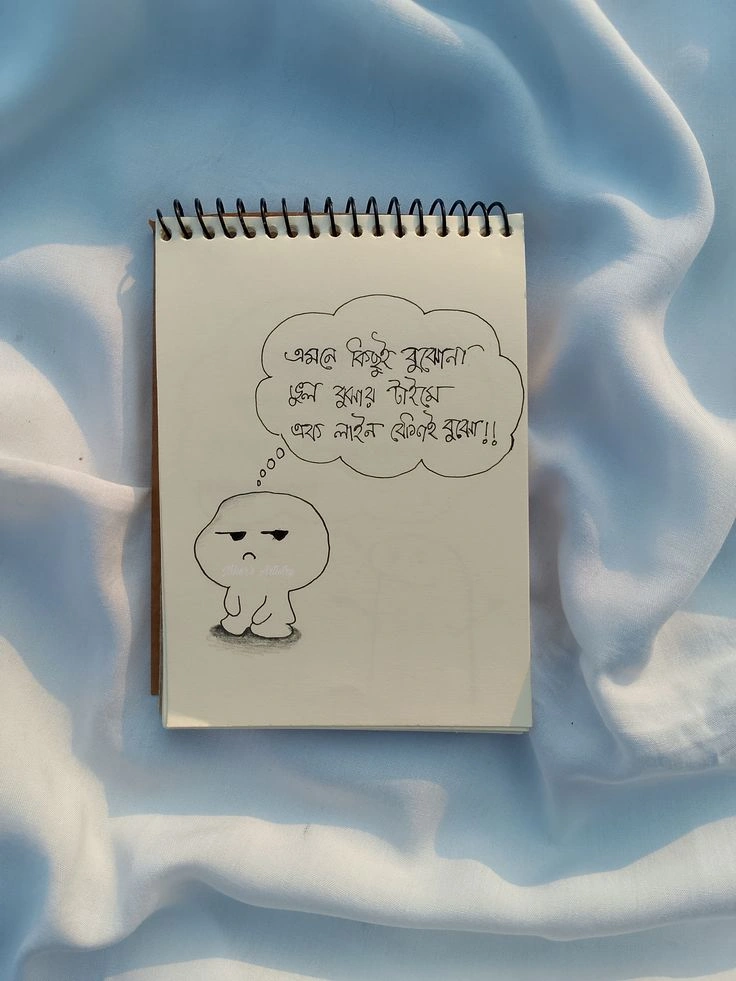 এমনে কিছুই বুঝোনা
ভুল বুঝার টাইমে
এক লাইন বেশিই বুঝো!!